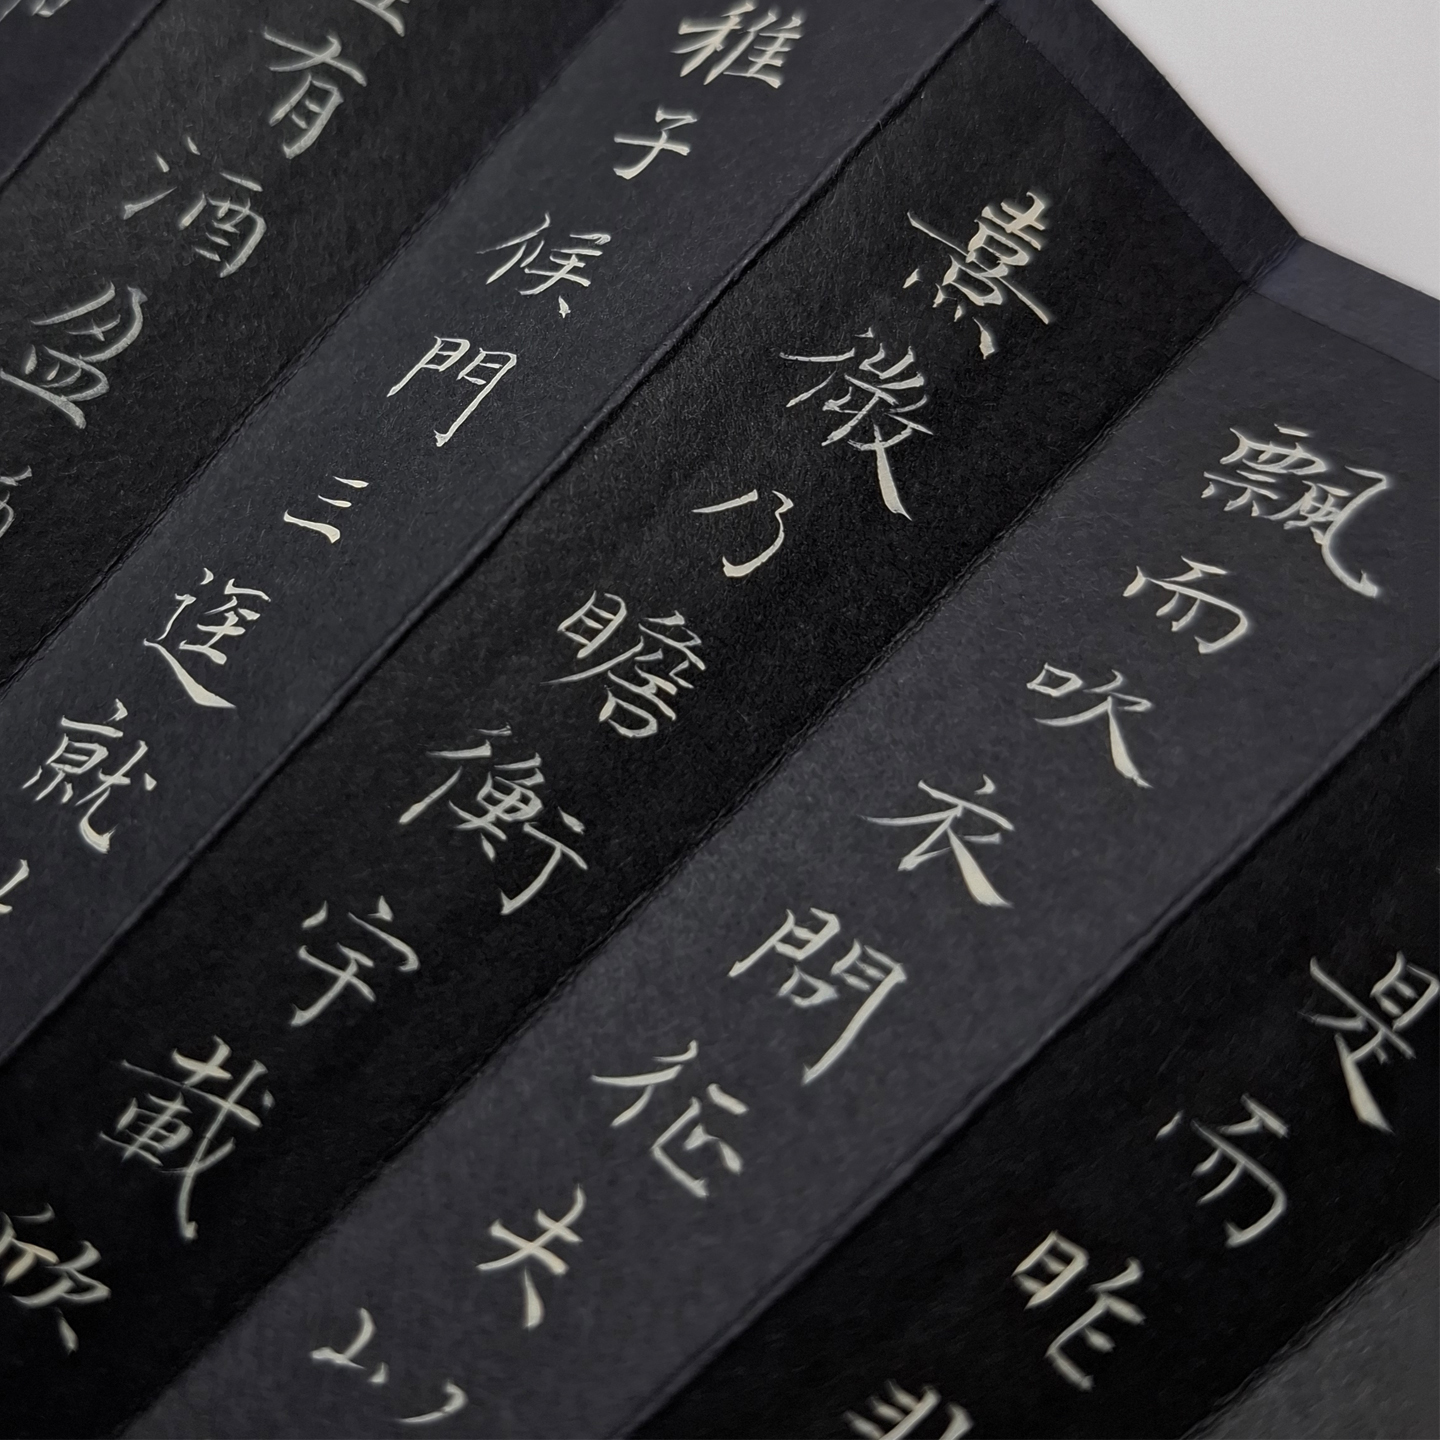 是而昨
飄而吹衣問征夫以
熹微乃瞻衡宇載欣
稚子候門三逕就
有酒盈